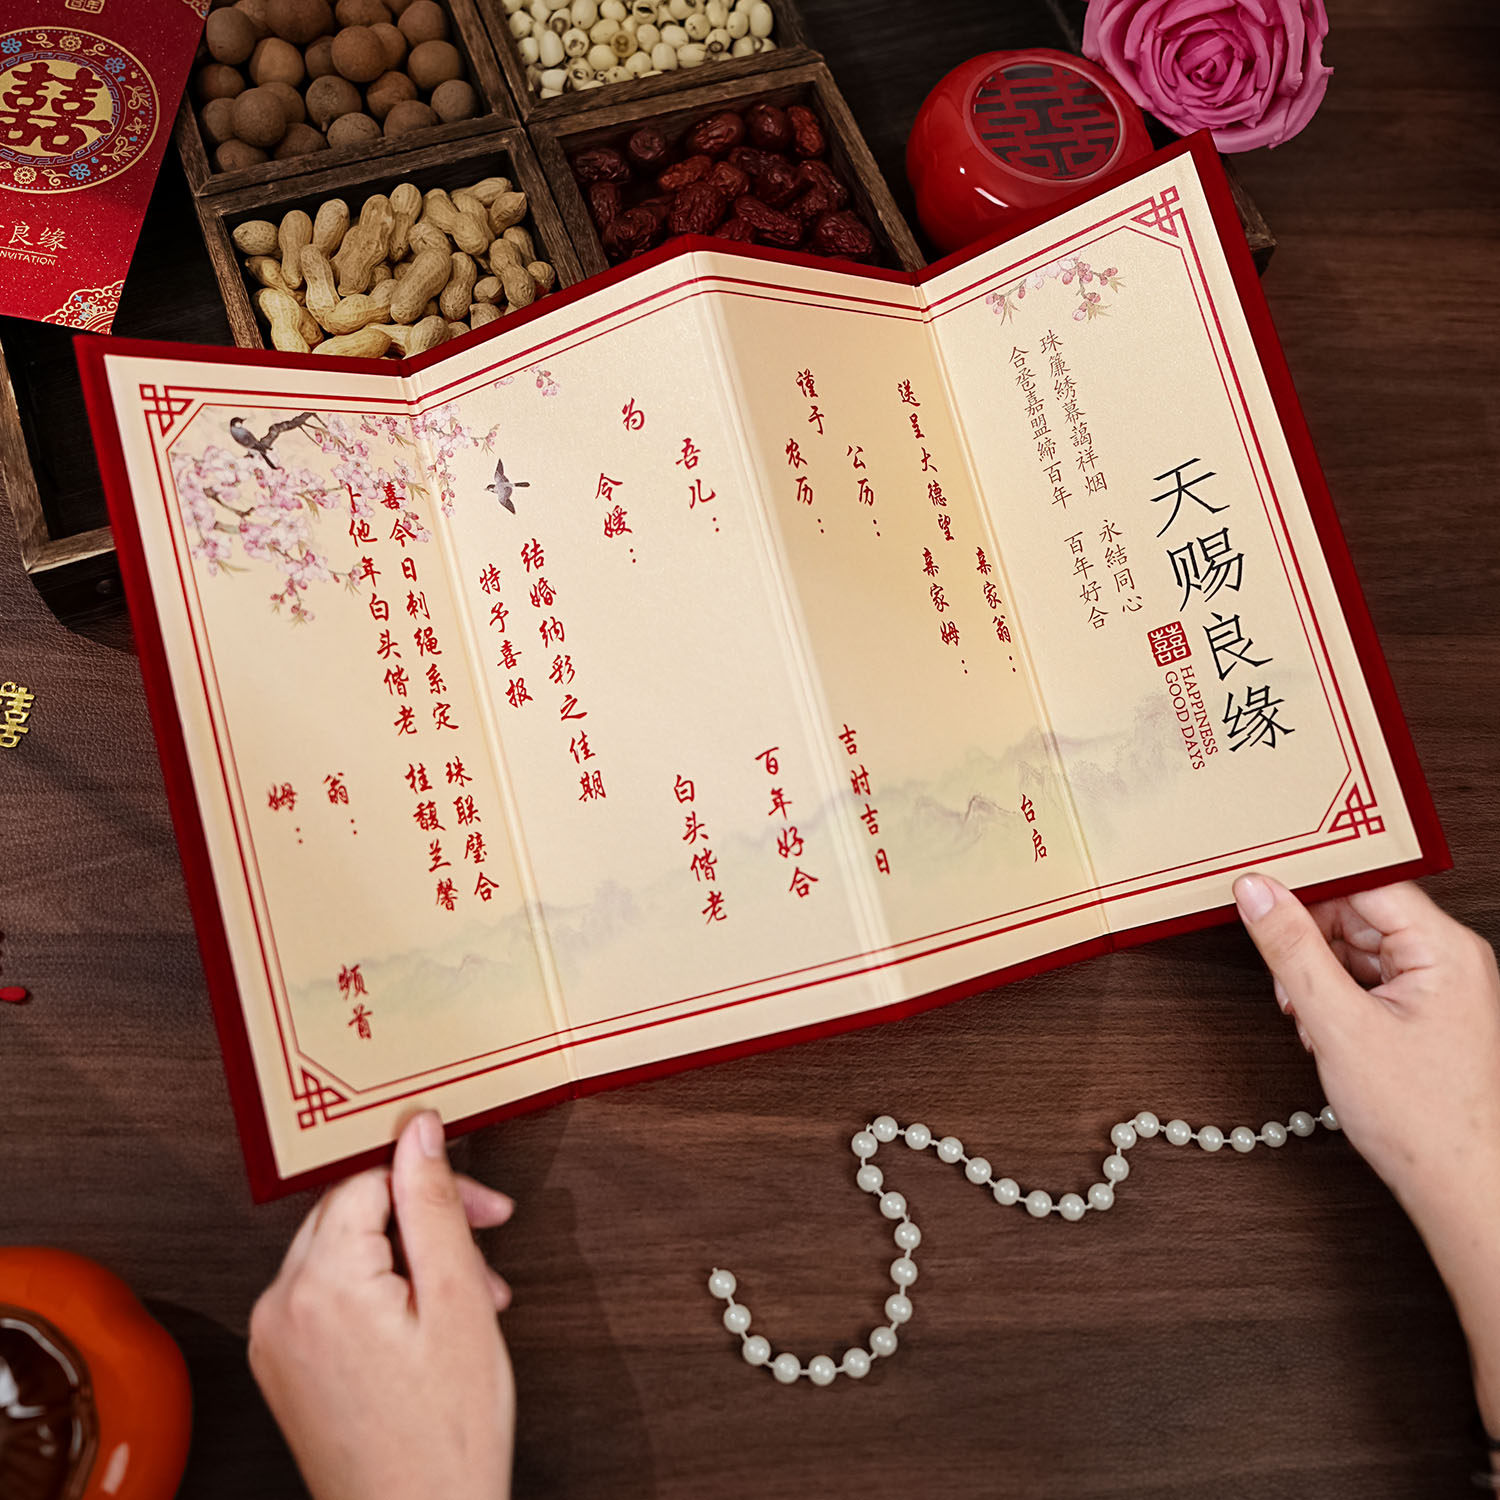 天赐良缘
囍
HAPPINESS
GOOD DAYS
珠簾绣幕蔼祥烟 永結同心
合卺嘉盟缔百年 百年好合
亲家翁： 台启
送呈大德望 亲家姆：
公历： 吉时吉日
谨于 农历：
百年好合
吾儿： 白头偕老
为 令嫒：
结婚纳彩之佳期
特予喜报
喜今日刺绳系定 珠联璧合
卜他年白头偕老 桂馥兰馨
翁：
姆： 顿首
囍
良缘
INVITATION
百年
囍